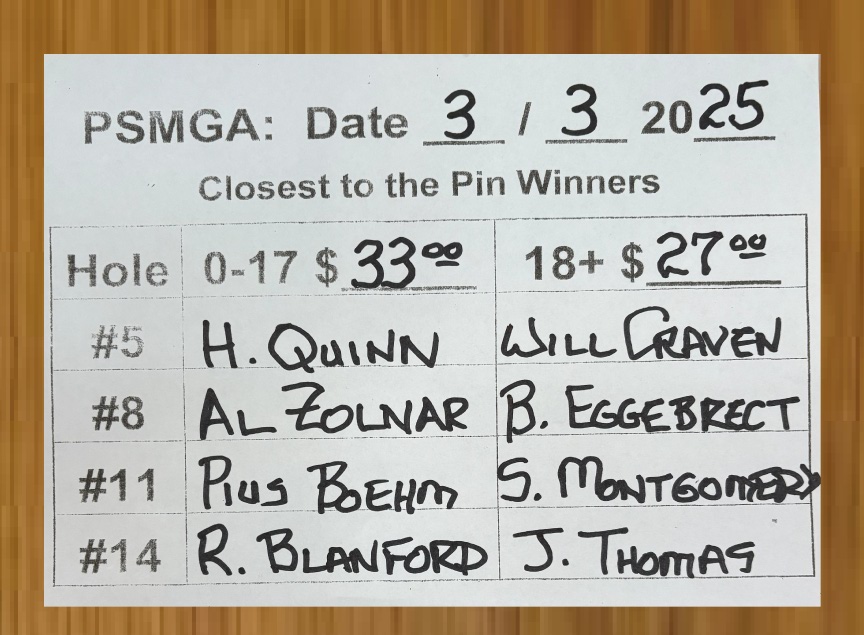 PSMGA: Date 3 / 3 2025
Closest to the Pin Winners
Hole 0-17 $ 33.00 18+ $ 27.00
#5 H. QUINN WILL CRAVEN
#8 AL ZOLNAR B. EGGEBRECT
#11 PIUS BOEHM S. MONTGOMERY
#14 R. BLANFORD J. THOMAS